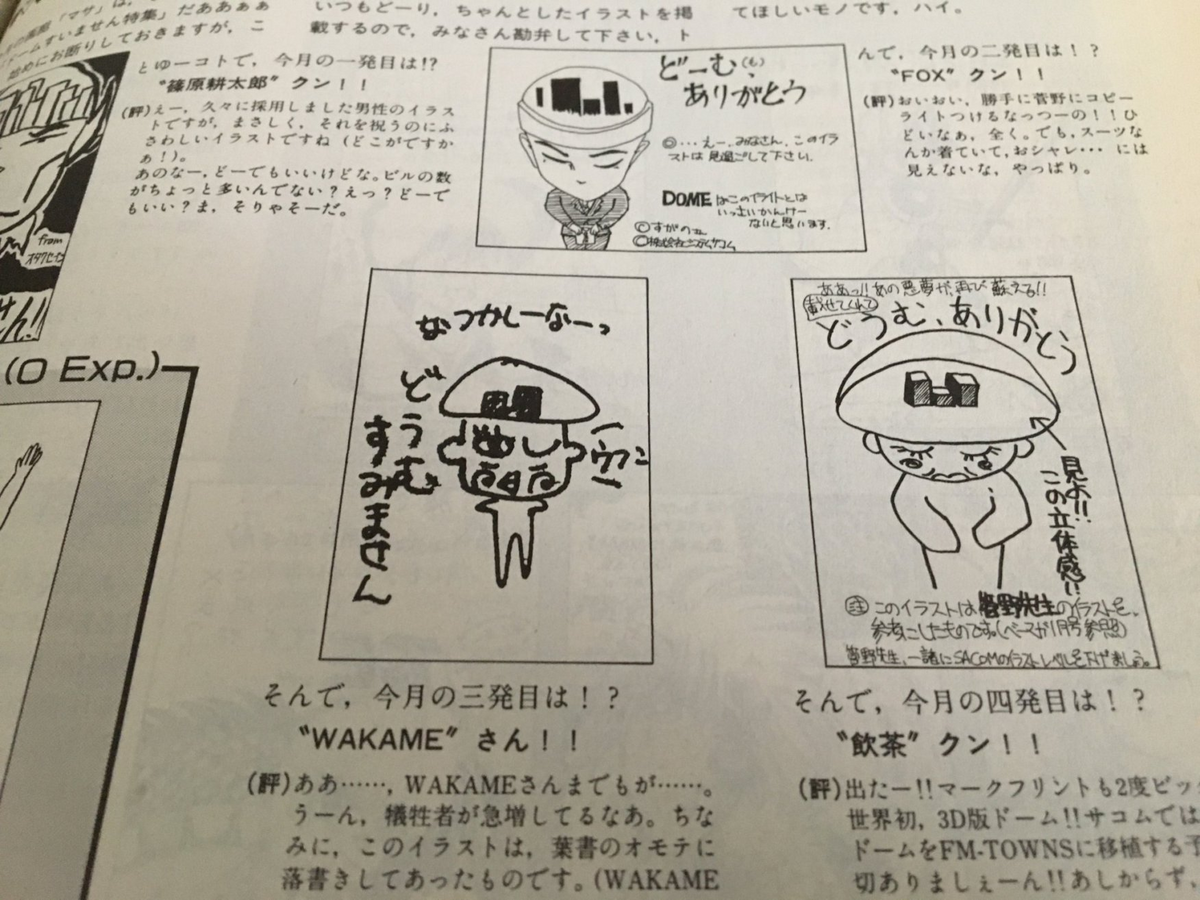 ドームすいません特集」だああぁぁ
始めにお断りしておきますが，こ
いつもどーり，ちゃんとしたイラストを掲
載するので，みなさん勘弁して下さい，ト
てほしいモノです，ハイ。
とゆーコトで，今月の一発目は!?
“篠原耕太郎” クン！！
(評)えー，久々に採用しました男性のイラス
トですが，まさしく，それを祝うのにふ
さわしいイラストですね（どこがですか
ぁ！）。
あのなー，どーでもいいけどな。ビルの数
がちょっと多いんでない？えっ？どーで
もいい？ま，そりゃそーだ。
from
どーむ、(も)
ありがとう
◎…えー、みなさん、このイラ
ストは見過ごして下さい。
DOME はこのイライトとは
いっさいかんけー
ないと思います。
んで，今月の二発目は！？
“FOX” クン！！
(評)おいおい，勝手に菅野にコピー
ライトつけるなっつーの！！ひ
どいなぁ，全く。でも，スーツな
んか着ていて，おシャレ・・・ には
見えないな，やっぱり。
(O Exp.)
なつかしーなーっ
どうむ
すみません
ウフン
ああっ!!あの悪夢が、再び蘇える!!
載せてくれて
どうむ、ありがとう
見よ!!
この立体感!!
注 このイラストは菅野先生のイラストを、
参考にしたものです。(ベーマガ1月号参照)
菅野先生、一緒にSACOMのイラストレベルを下げましょう。
そんで，今月の三発目は！？
“WAKAME” さん！！
(評)ああ……，WAKAMEさんまでもが……。
うーん，犠牲者が急増してるなあ。ちな
みに，このイラストは，葉書のオモテに
落書きしてあったものです。(WAKAME
そんで，今月の四発目は！？
“飲茶” クン！！
(評)出たー!!マークフリントも2度ビッ
世界初，3D版ドーム!!サコムでは
ドームをFM-TOWNSに移植する予
切ありましぇーん!!あしからず，